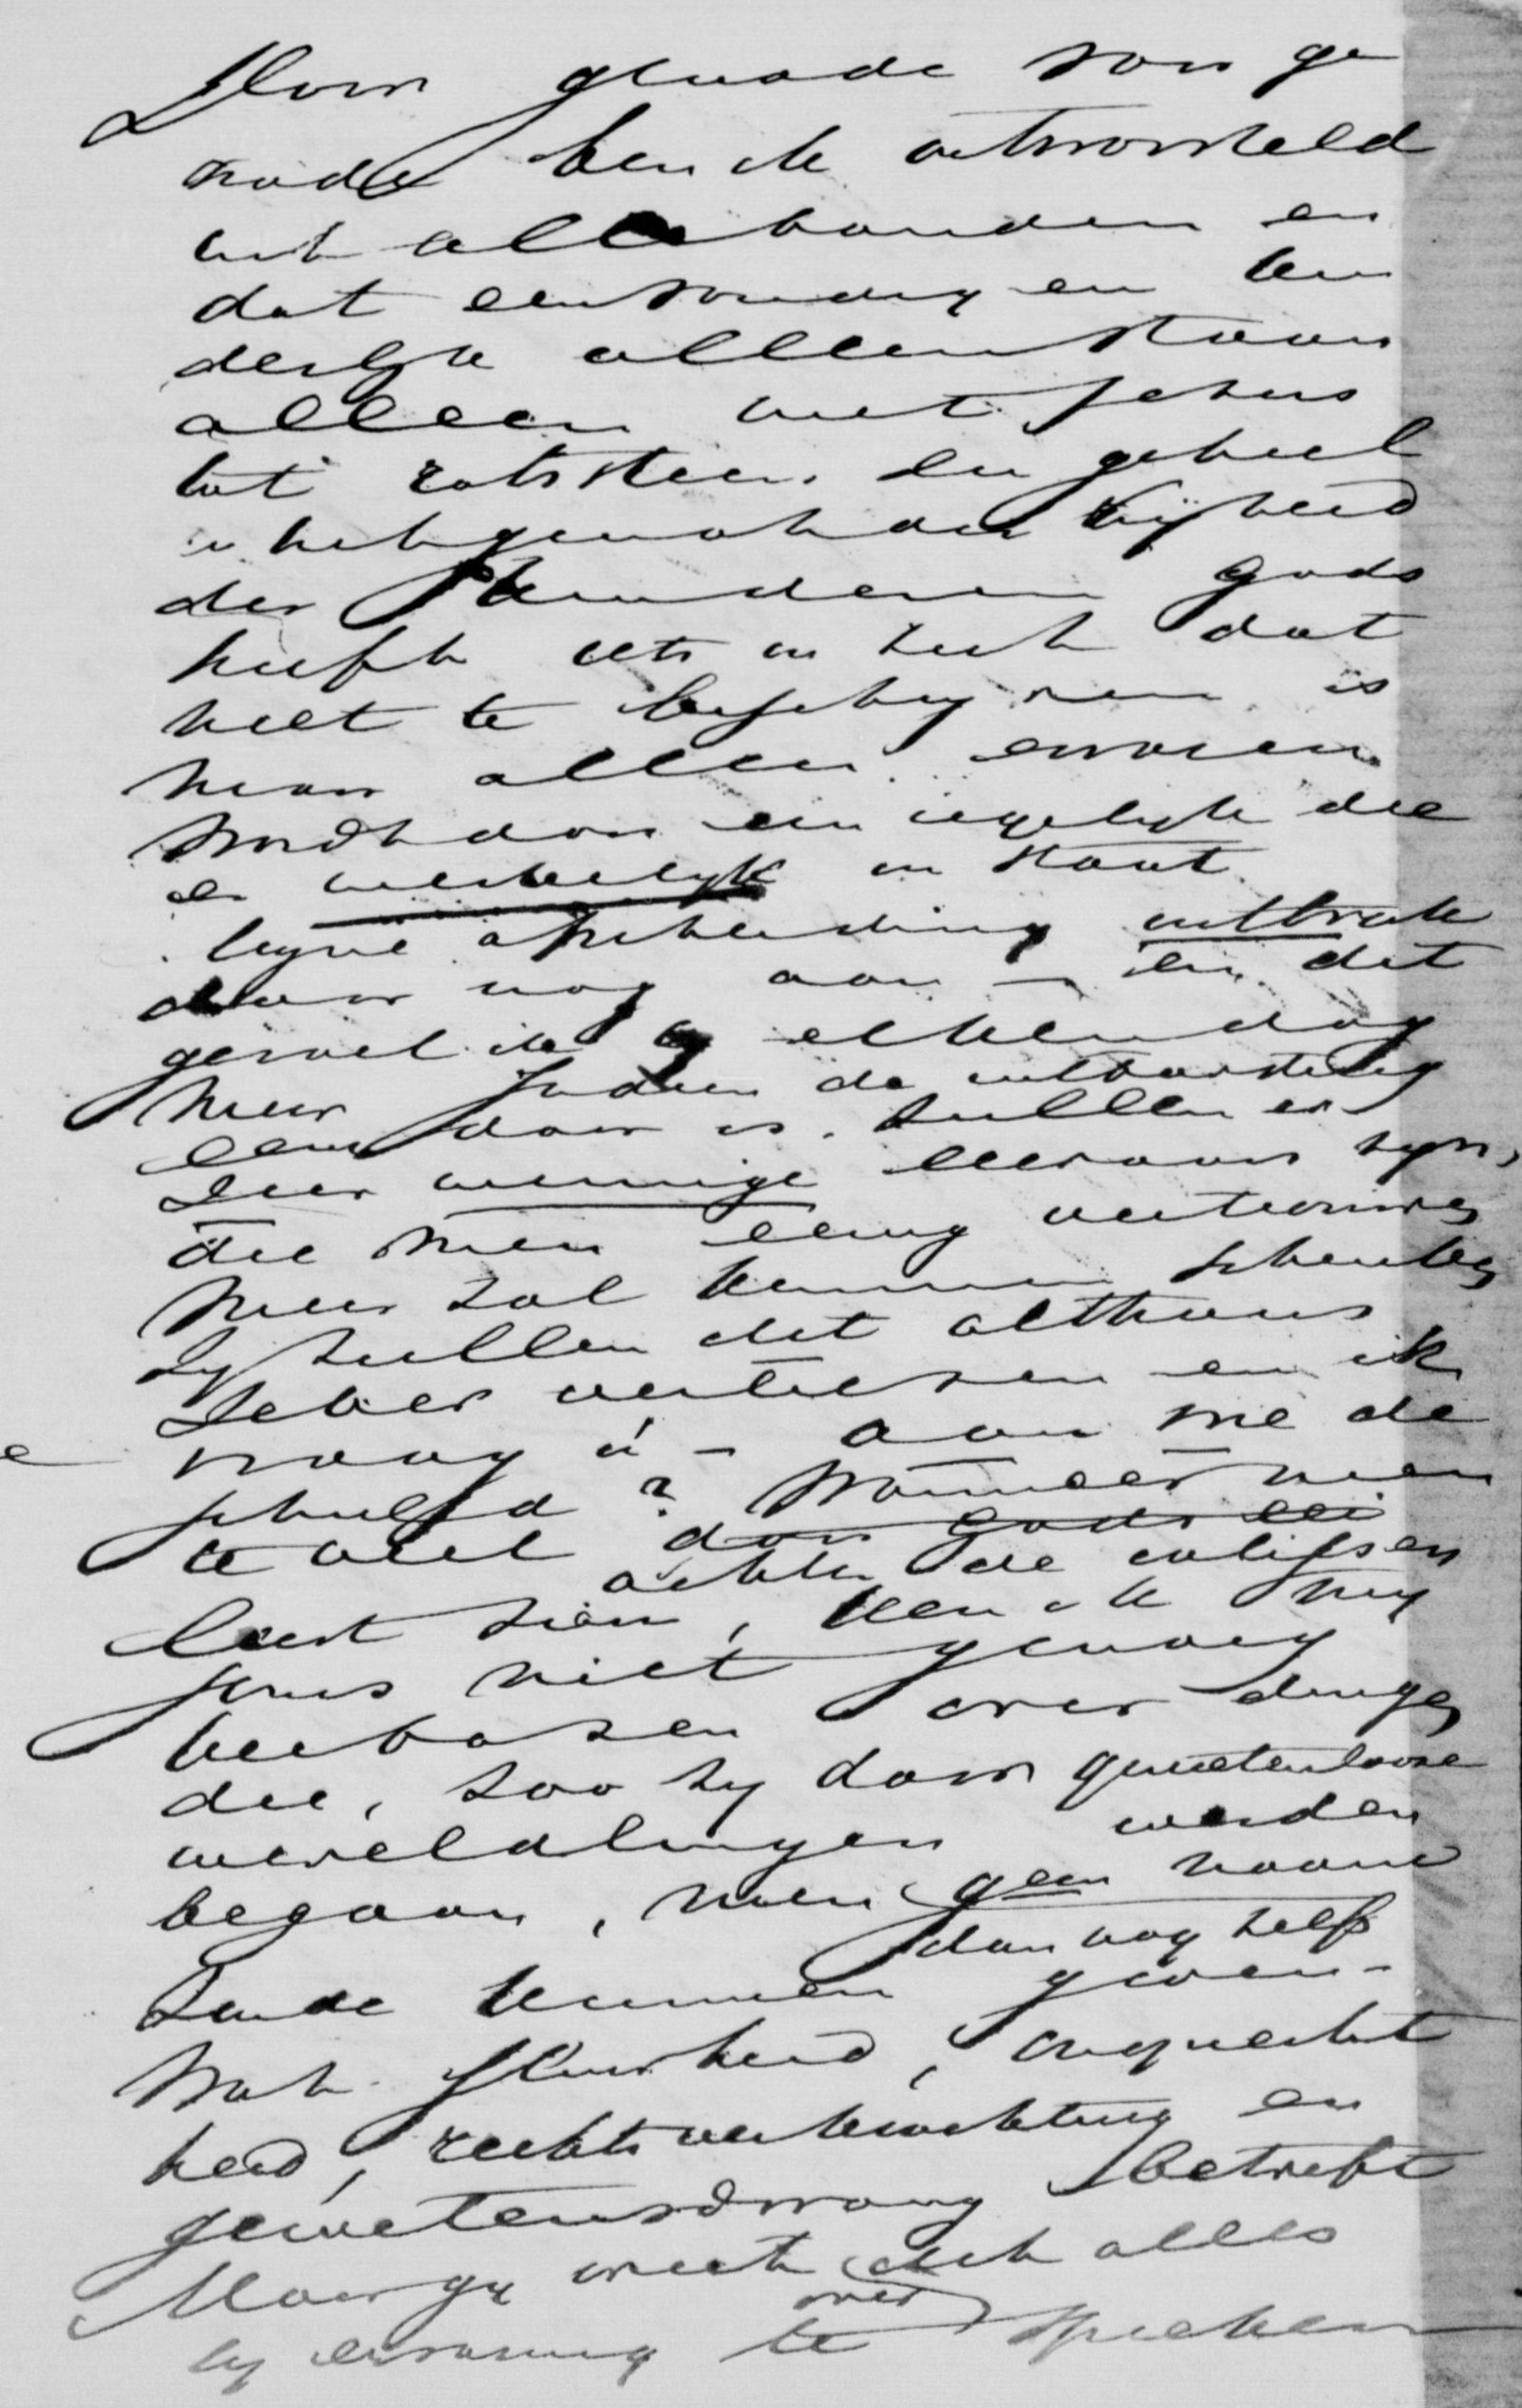 Door genade voor ge
nade ben ik ontworsteld
uit alle banden en
dat eenvoudig en kin
derlijk alleen staan
alleen met Jezus
tot rotssteen en geheel
in het genot der vrijheid
der kinderen Gods
heeft iets in zich dat
niet te beschrijven is
maar alleen ervaren
wordt door een iegelijk die
er werkelijk in staat
afscheiding uitbrak
daar nog aan — en dit
gevoel ik elken dag
meer. Indien de uitbarsting
eens daar is, zullen er
zeer weinige leeraars zijn,
die men eenig vertrouwen
meer zal kunnen schenken
Zy zullen dit althans
zeker verliezen en ik
vraag u — aan wie de
schuld? Wanneer men
te veel door Gods lei
achter de coulissen
laat zien, kan ik my
soms niet genoeg
verbazen over dingen
die, zoo zy door gewetenlooze
wereldlingen werden
begaan, men geen naam
dan nog zelfs
zoude kunnen geven -
Wat sluwheid, ongerecht
heid, rechtsverkrachting en
gewetensdwang betreft
Maar gy weet dit alles
over
by ervaring te spreken